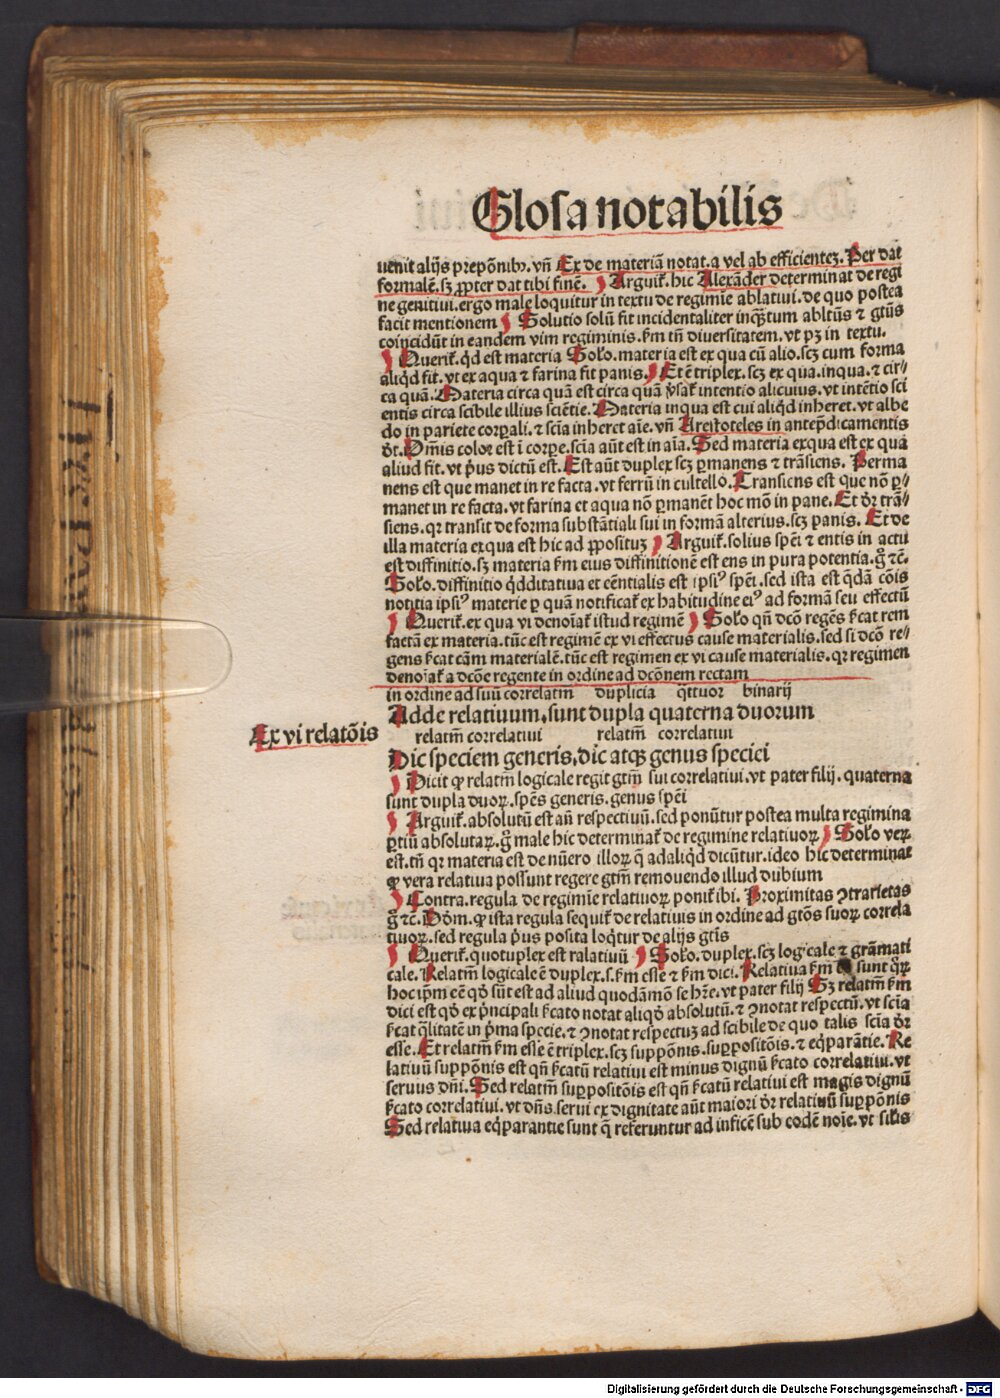 Glosa notabilis
uenit alijs prepōnibꝫ. vñ Ex de materiā notat. a vel ab efficientez. Per dat
formalē. sꝫ ꝓpter dat tibi finē. Arguit᷑. hic Alexāder determinat de regi
ne genitiui. ergo male loquitur in textu de regimīe ablatiui. de quo postea
facit mentionem Solutio solū fit incidentaliter inqꝫtum abltūs ⁊ gtūs
coincidūt in eandem vim regiminis. ẜm tñ diuersitatem. vt pꝫ in textu.
Querit᷑. qͥd est materia Solo. materia est ex qua cū alio. scꝫ cum forma
aliqͥd fit. vt ex aqua ⁊ farina fit panis. Et ē triplex. scꝫ ex qua. in qua. ⁊ cir⸗
ca quā. Materia circa quā est circa quā ꝟsat᷑ intentio alicuius. vt intētio sci
entis circa scibile illius sciētie. Materia in qua est cui aliqͥd inheret. vt albe
do in pariete corꝑali. ⁊ scīa inheret aīe. vñ Arestoteles in antep̄dicamentis
dt̄. Om̄is color est ī corꝑe. scīa aūt est in aīa. Sed materia ex qua est ex qua
aliud fit. vt pͥus dictū est. Est aūt duplex scꝫ ꝑmanens ⁊ trāsiens. Perma
nens est que manet in re facta. vt ferrū in cultello. Transiens est que nō ꝑ⸗
manet in re facta. vt farina et aqua nō ꝑmanēt hoc mō in pane. Et dr̄ trā⸗
siens. qꝛ transit de forma substātiali sui in formā alterius. scꝫ panis. Et de
illa materia ex qua est hic ad ꝓpositum Arguit᷑. solius spēi ⁊ entis in actu
est diffinitio. sꝫ materia ẜm eius diffinitionē est ens in pura potentia. g̊ ⁊c̄.
Solo. diffinitio qͥdditatiua et cēntialis est ipsiꝰ spēi. sed ista est qͣdā cōis
notitia ipsiꝰ materie ꝑ quā notificat᷑ ex habitudine eiꝰ ad formā seu effectū
Querit᷑. ex qua vi denoīat᷑ istud regimē Solo qn̄ dcō regēs ẜcat rem
factā ex materia. tūc est regimē ex vi effectus cause materialis. sed si dcō re⸗
gens ẜcat cām materialē. tūc est regimen ex vi cause materialis. qꝛ regimen
denoīat᷑ a dcōe regente in ordine ad dcōnem rectam
in ordine ad suū correlatm̄ duplicia qͣttuor binarij
Adde relatiuum. sunt dupla quaterna duorum
Ex vi relatōis
relatm̄ correlatiui relatm̄ correlatiui
Dic speciem generis, dic atqꝫ genus speciei
Dicit ꝙ relatm̄ logicale regit gtm̄ sui correlatiui. vt pater filij. quaterna
sunt dupla duoꝝ. spēs generis. genus spēi
Arguit᷑. absolutū est an̄ respectiuū. sed ponūtur postea multa regimina
ꝑtiū absolutaꝝ. g̊ male hic determinat᷑ de regimine relatiuoꝝ Solo veꝝ
est. tñ qꝛ materia est de nūero illoꝝ q̄ ad aliqͥd dicūtur. ideo hic determinat
ꝙ vera relatiua possunt regere gtm̄ remouendo illud dubium
Contra. regula de regimīe relatiuoꝝ ponit᷑ ibi. Proximitas ꝯtrarietas
g̊ ⁊c̄. Dōm. ꝙ ista regula sequit᷑ de relatiuis in ordine ad gtōs suoꝝ correla
tiuoꝝ. sed regula pͥus posita loqͥtur de alijs gtīs
Querit᷑. quotuplex est ralatiuū Solo. duplex. scꝫ logicale ⁊ grāmati
cale. Relatm̄ logicale ē duplex. s. ẜm esse ⁊ ẜm dici. Relatiua ẜm sunt qͦꝝ
hoc ip̄m eē qd̓ sūt est ad aliud quodāmō se hr̄e. vt pater filij Sꝫ relatm̄ ẜm
dici est qd̓ ex pͥncipali ẜcato notat aliqd̓ absolutū. ⁊ ꝯnotat respectū. vt scīa
ẜcat qͣlitatē in pͥma specie. ⁊ ꝯnotat respectuꝫ ad scibile de quo talis scīa dr̄
esse. Et relatm̄ ẜm esse ē triplex. scꝫ suppōnis. suꝑpositōis. ⁊ eqͥparātie. Re
latiuū suppōnis est qn̄ ẜcatū relatiui est minus dignū ẜcato correlatiui. vt
seruus dn̄i. Sed relatm̄ suꝑpositōis est qn̄ ẜcatū relatiui est magis dignū
ẜcato correlatiui. vt dn̄s serui ex dignitate aūt maiori dr̄ relatiuū suꝑpōnis
Sed relatiua eqͥparantie sunt q̄ referuntur ad inficē sub codē noīe. vt silis
Digitalisierung gefördert durch die Deutsche Forschungsgemeinschaft - DFG